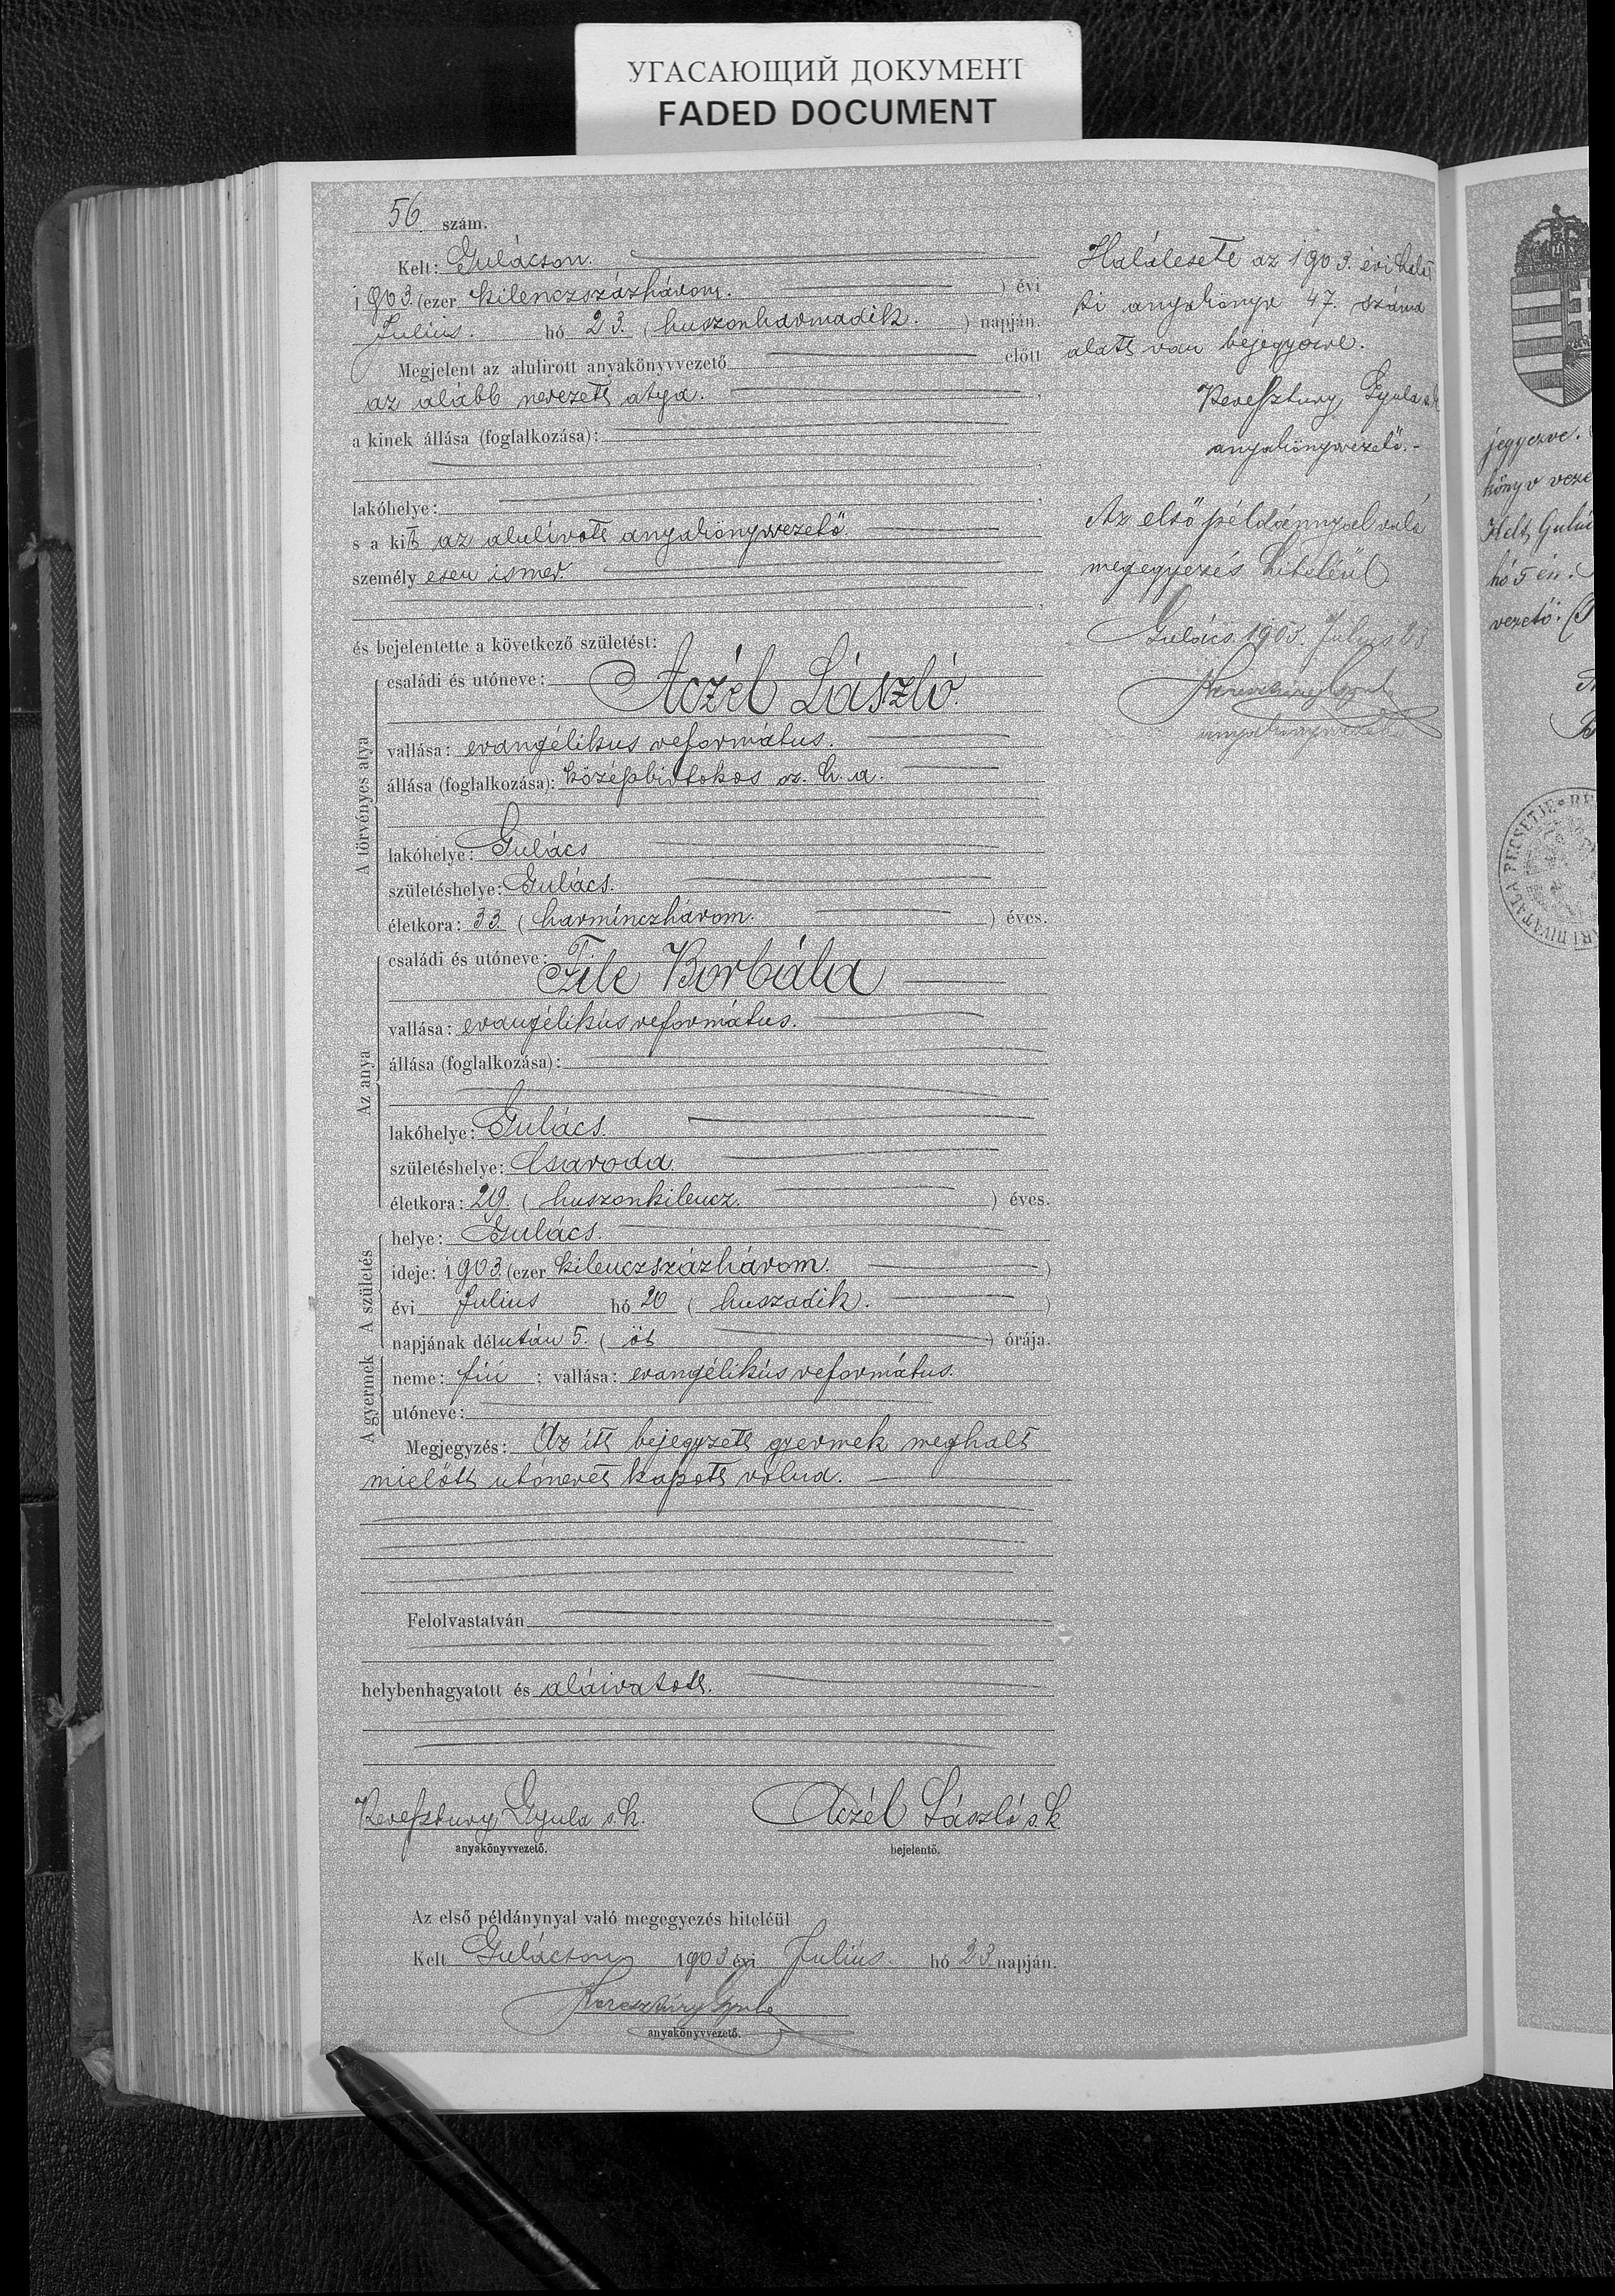 УГАСАЮЩИЙ ДОКУМЕНТ
FADED DOCUMENT
56. szám.
Kelt: Gulácson.
1903. (ezer kilenczszázhárom.) évi
Julius. hó 23. (huszonharmadik.) napján.
Megjelent az alulirott anyakönyvvezető előtt
az alább nevezett atya.
a kinek állása (foglalkozása):
lakóhelye:
s a kit az alulírott anyakönyvvezető
személy esen ismer.
és bejelentette a következő születést:
A törvényes atya
családi és utóneve: Aczél László.
vallása: evangélikus református.
állása (foglalkozása): középbirtokos sz. h. a.
lakóhelye: Gulács
születéshelye: Gulács.
életkora: 33. (harminczhárom.) éves.
Az anya
családi és utóneve: File Borbála
vallása: evangélikús református.
állása (foglalkozása):
lakóhelye: Gulács.
születéshelye: Csaroda.
életkora: 29. (huszonkilencz.) éves.
A születés
helye: Gulács.
ideje: 1903. (ezer kilenczszázhárom.)
évi Julius hó 20 (huszadik.)
napjának délután 5. (öt) órája.
A gyermek
neme: fiú; vallása: evangélikús református.
utóneve:
Megjegyzés: Az itt bejegyzett gyermek meghalt
mielőtt utónevet kapott volna.
Felolvastatván
helybenhagyatott és aláiratott.
Keresztury Gyula s.k. Aczél László s.k.
anyakönyvvezető. bejelentő.
Az első példánynyal való megegyezés hiteléül
Kelt Gulácson 1903 évi Julius. hó 23. napján.
Keresztúry Gyula
anyakönyvvezető.
Halálesete az 1903. évi halot
ti anyakönyv 47. száma
alatt van bejegyezve.
Keresztury Gyula s.k.
anyakönyvvezető.-
Az első példánnyal való
megegyezés hiteléül
Gulács. 1903. Július 23
Keresztúry Gyula
anyakönyvvezető
jegyezve.
könyv veze
Kelt Gulác
hó 5 én.
vezető: